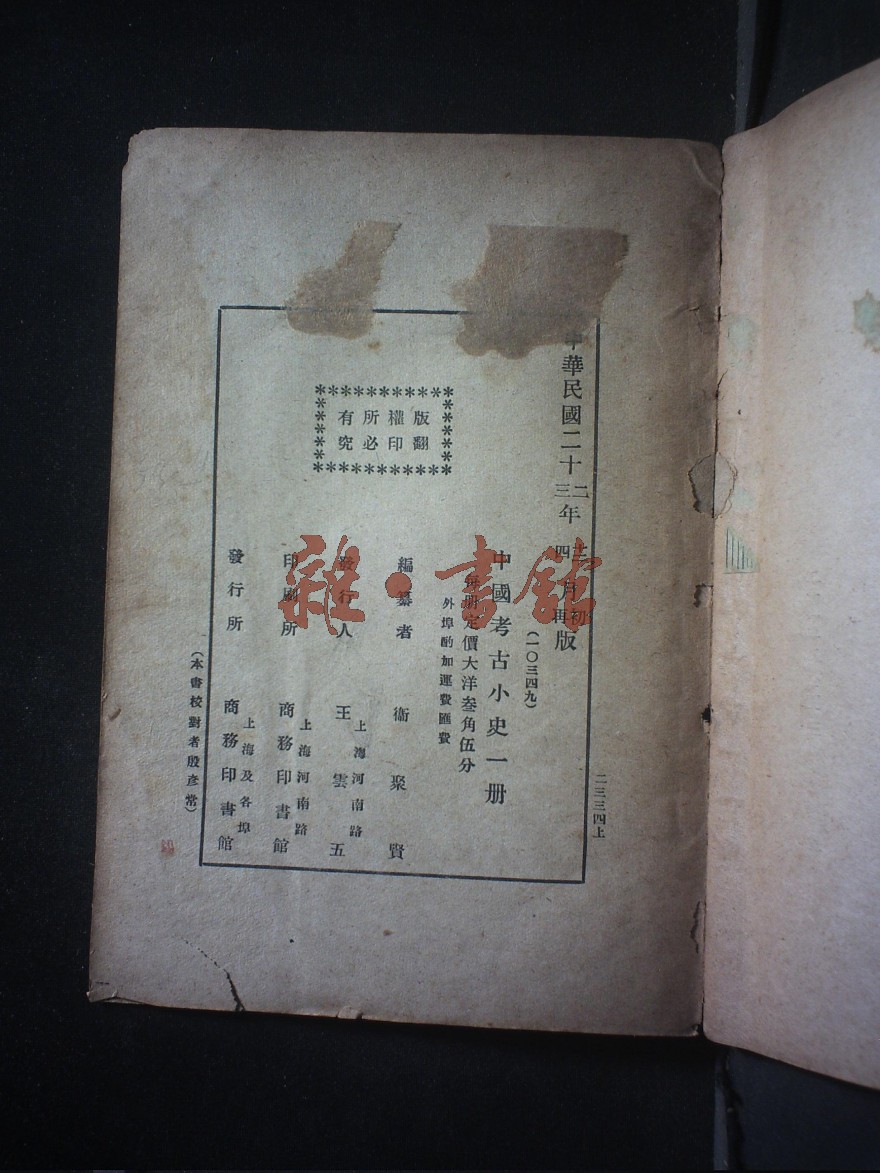 中華民國二十二年三月初版
中華民國二十三年四月再版
(一〇三四九)
中國考古小史一册
每册定價大洋叁角伍分
外埠酌加運費匯費
版權所有
翻印必究
編纂者 衞聚賢
發行人 上海河南路 王雲五
印刷所 上海河南路 商務印書館
發行所 上海及各埠 商務印書館
(本書校對者殷彥常)
二三三四上
雜·書館